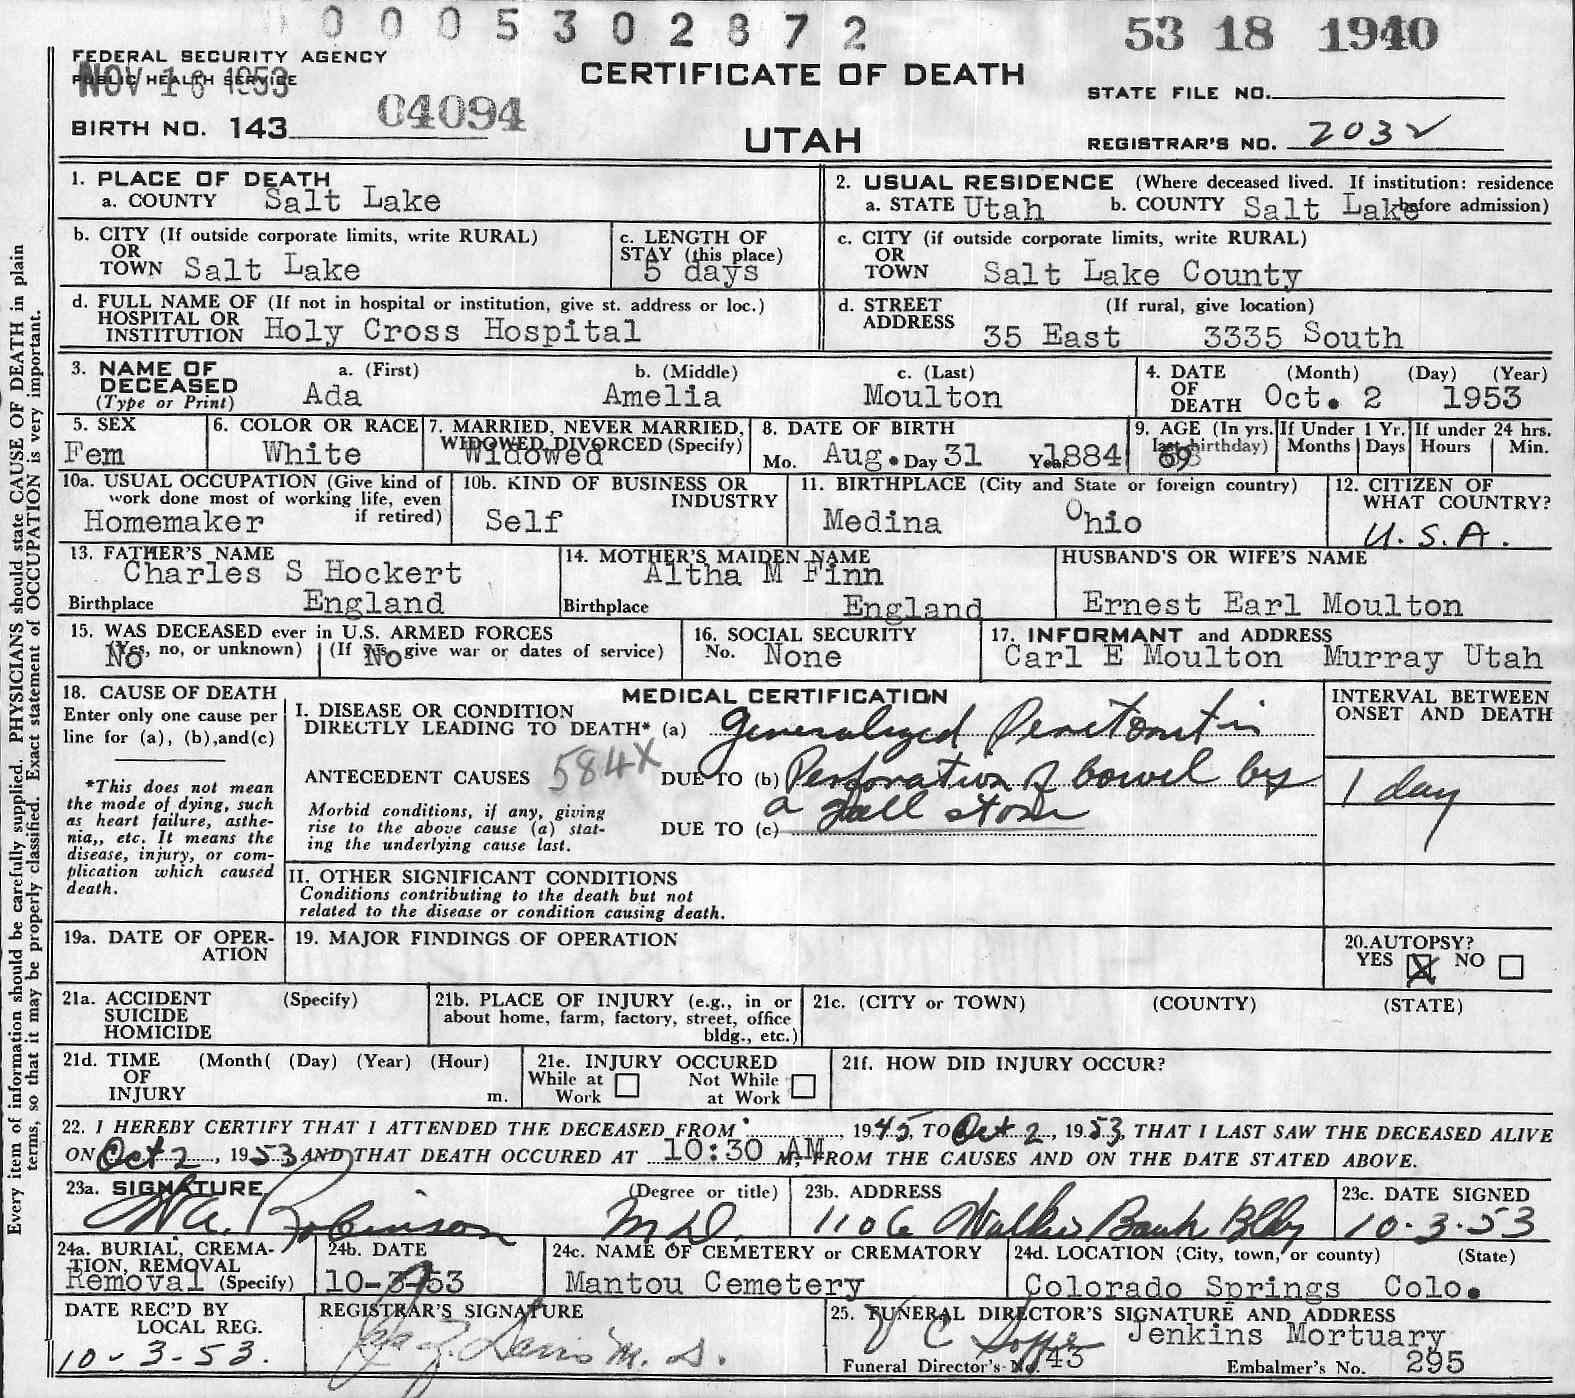 0 0 0 5 3 0 2 8 7 2
53 18 1940
FEDERAL SECURITY AGENCY
PUBLIC HEALTH SERVICE
NOV 16 1953
CERTIFICATE OF DEATH
STATE FILE NO.
BIRTH NO. 143
C4094
UTAH
REGISTRAR'S NO. 2032
1. PLACE OF DEATH
a. COUNTY Salt Lake
2. USUAL RESIDENCE (Where deceased lived. If institution: residence before admission)
a. STATE Utah b. COUNTY Salt Lake
b. CITY (If outside corporate limits, write RURAL)
OR
TOWN Salt Lake
c. LENGTH OF
STAY (this place)
5 days
c. CITY (if outside corporate limits, write RURAL)
OR
TOWN Salt Lake County
d. FULL NAME OF (If not in hospital or institution, give st. address or loc.)
HOSPITAL OR
INSTITUTION Holy Cross Hospital
d. STREET (If rural, give location)
ADDRESS 35 East 3335 South
3. NAME OF
DECEASED
(Type or Print)
a. (First) b. (Middle) c. (Last)
Ada Amelia Moulton
4. DATE (Month) (Day) (Year)
OF
DEATH Oct. 2 1953
5. SEX
Fem
6. COLOR OR RACE
White
7. MARRIED, NEVER MARRIED,
WIDOWED, DIVORCED (Specify)
Widowed
8. DATE OF BIRTH
Mo. Aug. Day 31 Year 1884
9. AGE (In yrs. last birthday)
69
If Under 1 Yr.
Months Days
If under 24 hrs.
Hours Min.
10a. USUAL OCCUPATION (Give kind of
work done most of working life, even
if retired)
Homemaker
10b. KIND OF BUSINESS OR
INDUSTRY
Self
11. BIRTHPLACE (City and State or foreign country)
Medina Ohio
12. CITIZEN OF
WHAT COUNTRY?
U. S. A.
13. FATHER'S NAME
Charles S Hockert
Birthplace England
14. MOTHER'S MAIDEN NAME
Altha M Finn
Birthplace England
HUSBAND'S OR WIFE'S NAME
Ernest Earl Moulton
15. WAS DECEASED ever in U.S. ARMED FORCES
(Yes, no, or unknown) (If yes, give war or dates of service)
No No
16. SOCIAL SECURITY
No. None
17. INFORMANT and ADDRESS
Carl E Moulton Murray Utah
18. CAUSE OF DEATH
Enter only one cause per
line for (a), (b),and(c)
*This does not mean
the mode of dying, such
as heart failure, asthe-
nia,, etc. It means the
disease, injury, or com-
plication which caused
death.
MEDICAL CERTIFICATION
I. DISEASE OR CONDITION
DIRECTLY LEADING TO DEATH* (a) Generalized Peritonitis
ANTECEDENT CAUSES 584X DUE TO (b) Perforation of bowel by
a gall stone
Morbid conditions, if any, giving
rise to the above cause (a) stat-
ing the underlying cause last.
DUE TO (c)
INTERVAL BETWEEN
ONSET AND DEATH
1 day
II. OTHER SIGNIFICANT CONDITIONS
Conditions contributing to the death but not
related to the disease or condition causing death.
19a. DATE OF OPER-
ATION
19. MAJOR FINDINGS OF OPERATION
20.AUTOPSY?
YES NO
21a. ACCIDENT (Specify)
SUICIDE
HOMICIDE
21b. PLACE OF INJURY (e.g., in or
about home, farm, factory, street, office
bldg., etc.)
21c. (CITY or TOWN) (COUNTY) (STATE)
21d. TIME (Month( (Day) (Year) (Hour)
OF
INJURY m.
21e. INJURY OCCURED
While at Work Not While at Work
21f. HOW DID INJURY OCCUR?
22. I HEREBY CERTIFY THAT I ATTENDED THE DECEASED FROM , 1945, TO Oct 2, 1953, THAT I LAST SAW THE DECEASED ALIVE
ON Oct 2, 1953 AND THAT DEATH OCCURED AT 10:30 AM M, FROM THE CAUSES AND ON THE DATE STATED ABOVE.
23a. SIGNATURE (Degree or title)
Robinson M.D.
23b. ADDRESS
1106 Walker Bank Bldg
23c. DATE SIGNED
10-3-53
24a. BURIAL, CREMA-
TION, REMOVAL
Removal (Specify)
24b. DATE
10-3-53
24c. NAME OF CEMETERY OR CREMATORY
Mantou Cemetery
24d. LOCATION (City, town, or county) (State)
Colorado Springs Colo.
DATE REC'D BY
LOCAL REG.
10-3-53.
REGISTRAR'S SIGNATURE
Davis M. D.
25. FUNERAL DIRECTOR'S SIGNATURE AND ADDRESS
Jenkins Mortuary
Funeral Director's No. 43 Embalmer's No. 295
Every item of information should be carefully supplied. PHYSICIANS should state CAUSE OF DEATH in plain
terms, so that it may be properly classified. Exact statement of OCCUPATION is very important.